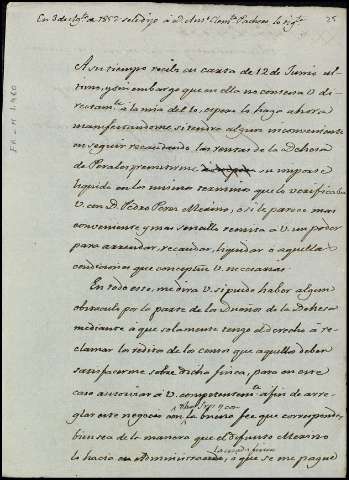 En 3 de Ag.to de 1857 se dijo á D. Ant.o Pacheco lo sig.te
25
A su tiempo recibí su carta de 12 de Junio ul-
timo, y sin embargo que en ella no contesta V. di-
rectam.te á la mia del 10, espero lo haga ahora
manifestandome si tendrá algun inconveniente
en seguir recaudando las rentas de la dehesa
de Perales y remitirme su importe
liquido en los mismos terminos que lo verificaba
V. con D. Pedro Perez Merino, ó si le parece mas
conveniente y mas sencillo remita á V. un poder
para arrendar, recaudar, liquidar ó aquellas
condiciones que conceptúe V. necesarias.
En todo esto, me dirá V. si puede haber algun
obstaculo por la parte de los Dueños de la Dehesa
mediante á que solamente tengo el derecho á re-
clamar los reditos de los censos que aquellos deben
satisfacerme sobre dicha finca, para en este
caso autorizar á V. competentem.te á fin de arre-
glar este negocio con la buena fee que corresponde,
bien sea de la manera que el difunto Merino
lo hacía en Administración, á que se me pague